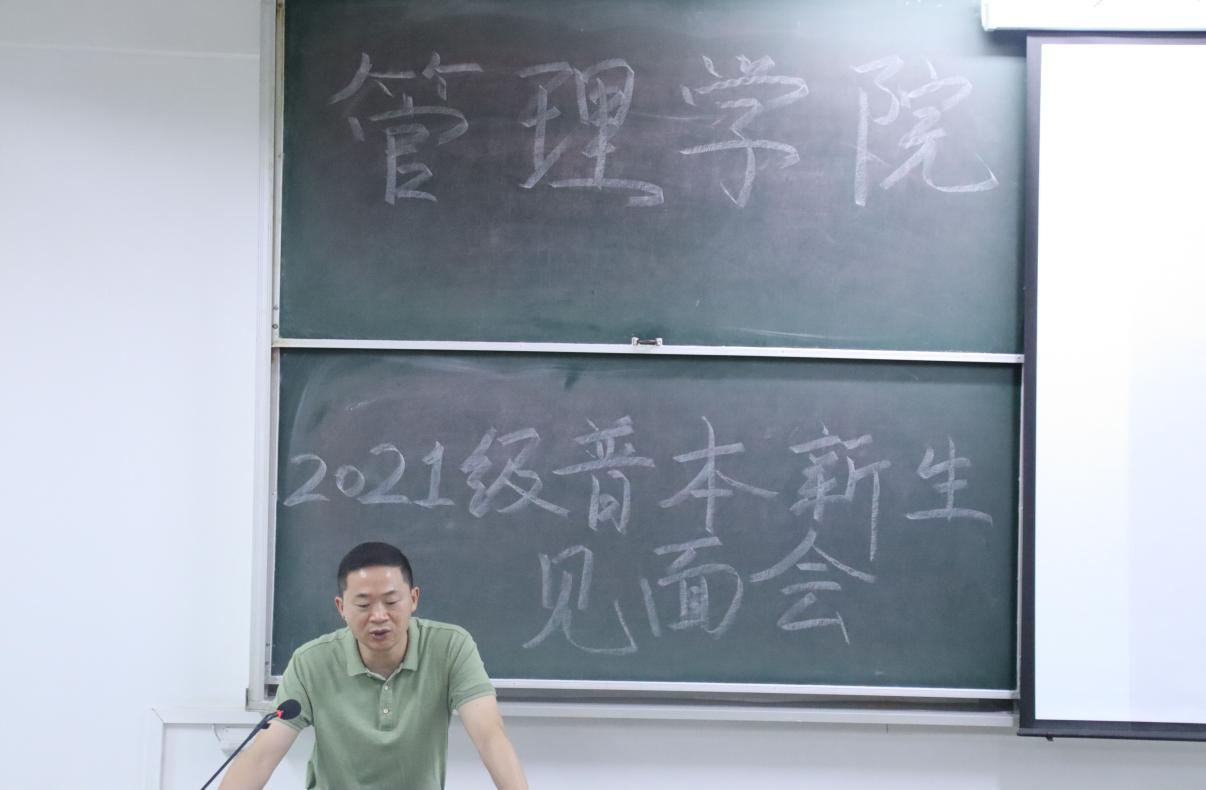 管理学院
2021级普本新生
见面会